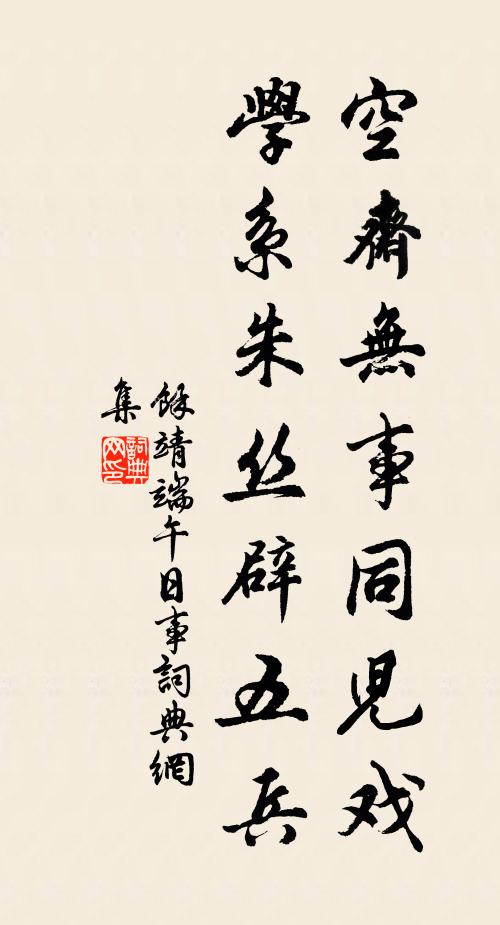 空齋無事同児戏
學系朱丝辟五兵
馀靖端午日事詞典網
集
詞典網印